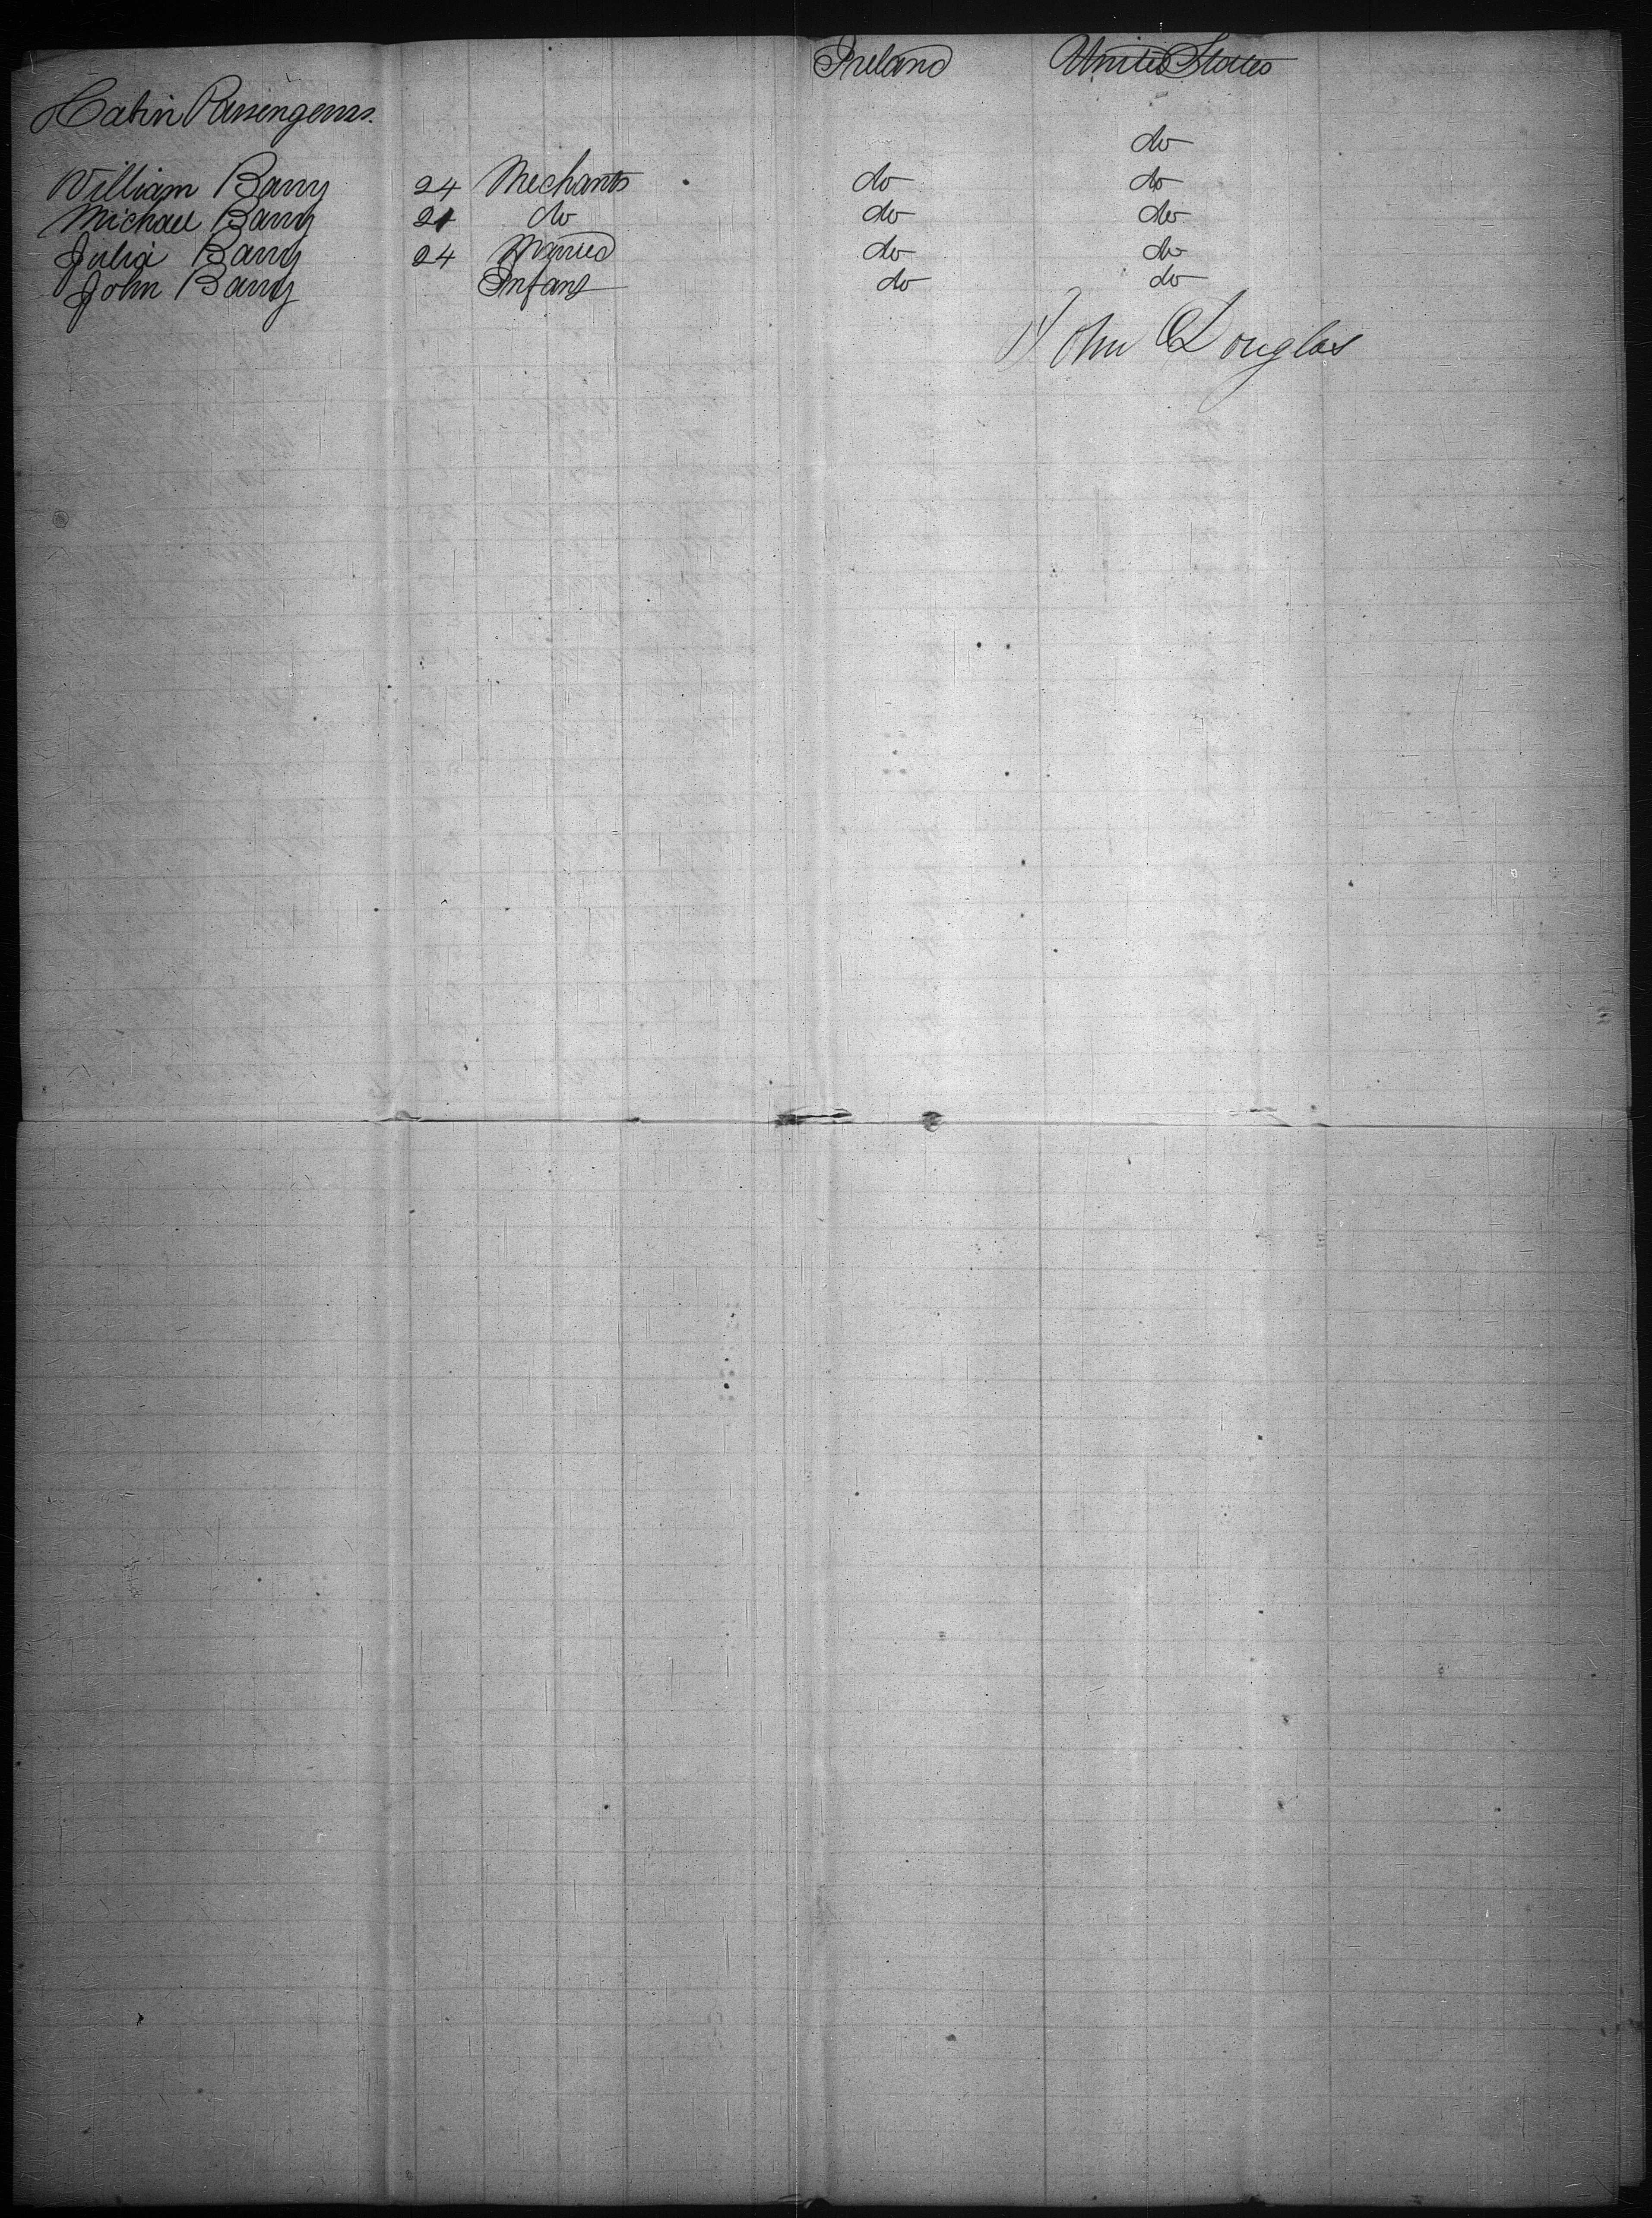 Ireland United States
Cabin Passengers.
do
William Barry 24 Mechants do do
Michael Barry 21 do do do
Julia Barry 24 Married do do
John Barry Infant do do
John Douglas